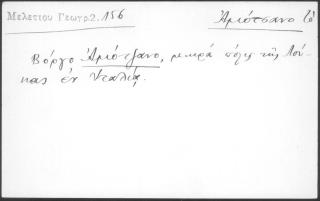 Μελετίου Γεωγρ.2.156
Ἀριότσανο
Βόργο Ἀριότζανο, μικρὰ πόλις τῆς Λού-
κας ἐν Ἰταλίᾳ.